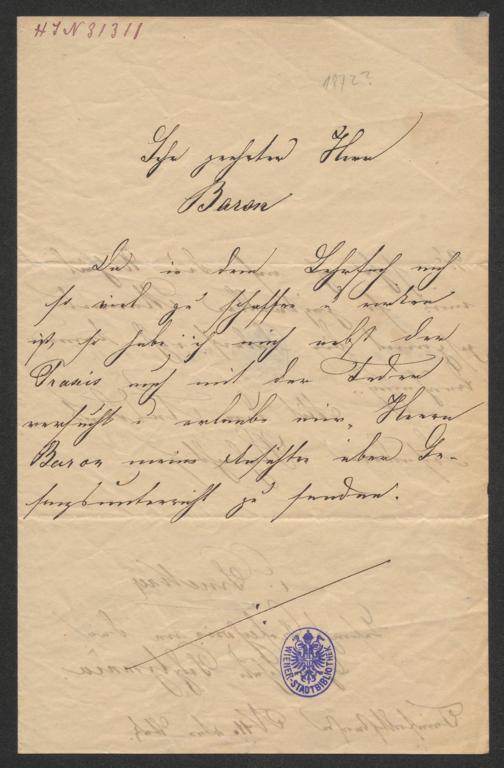 HIN 31311
1872?
Sehr geehrter Herr
Baron
Da in dem Lehrfach noch
so viel zu schaffen u
ist, so habe ich mich nebst der
Praxis auch mit der Feder
versucht u erlaube mir, Herrn
Baron meine Ansichten über Ge-
sangsunterricht zu senden.
WIENER-STADTBIBLIOTHEK